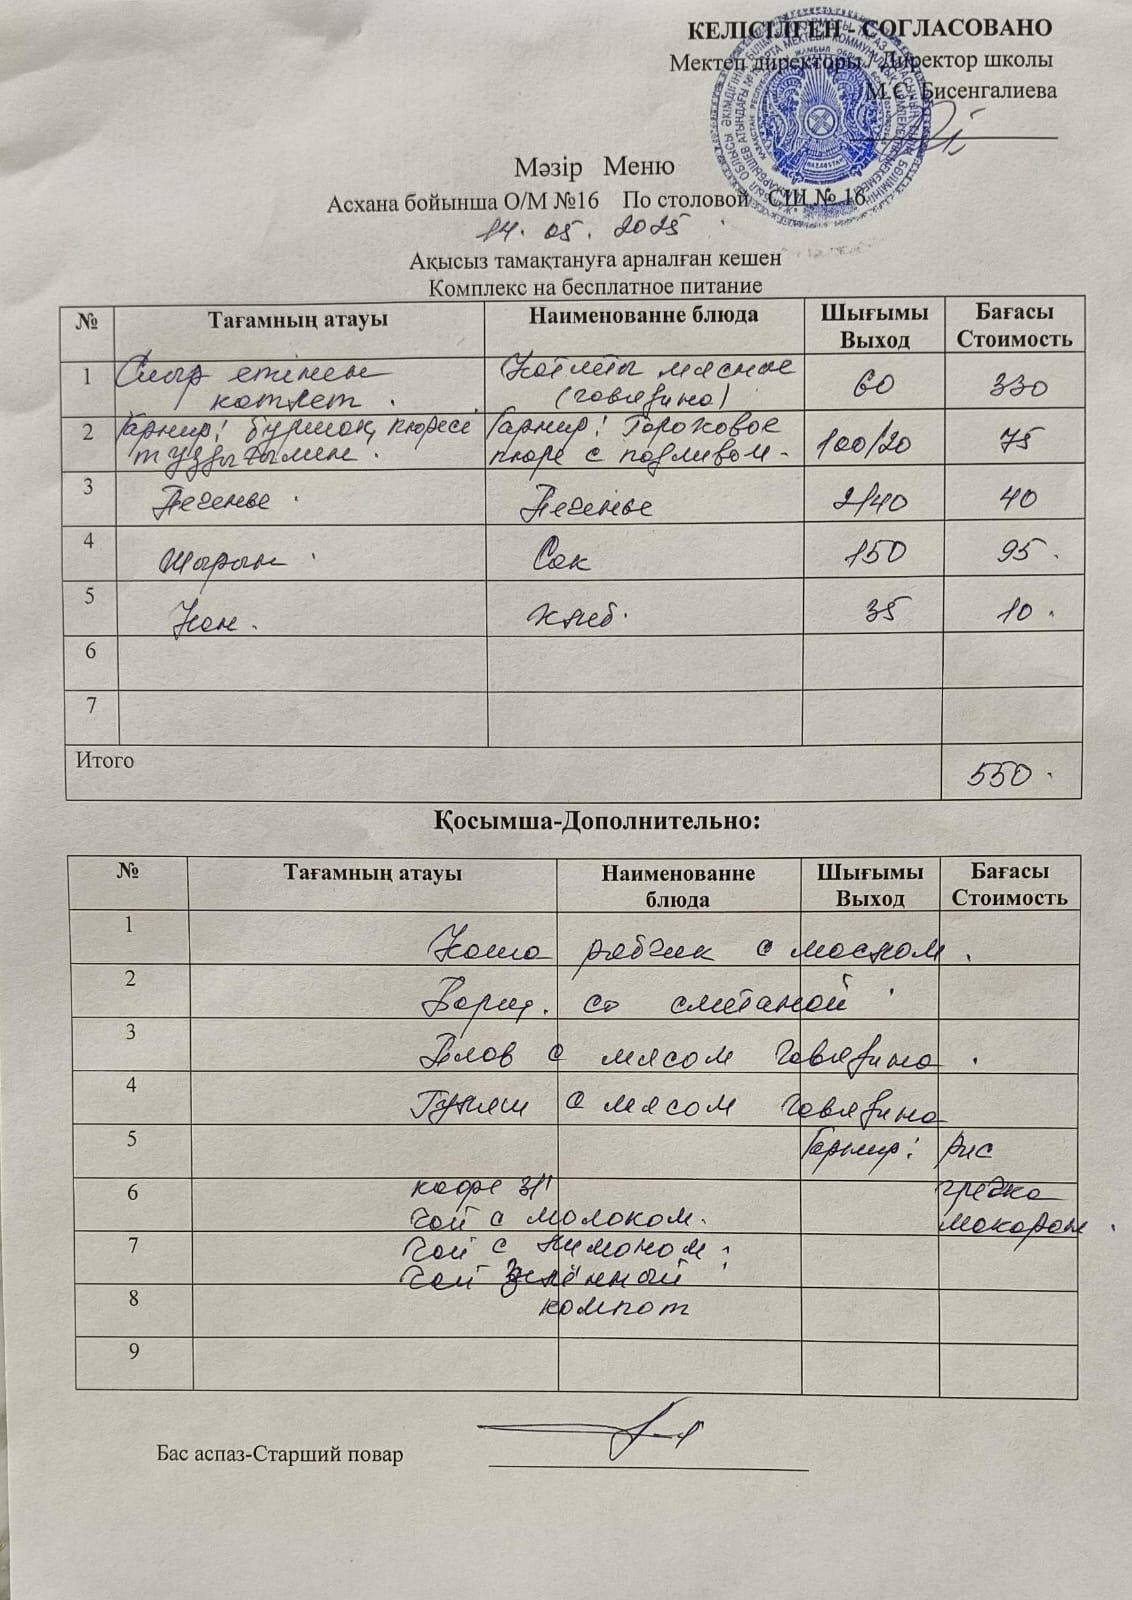 КЕЛІСІЛГЕН - СОГЛАСОВАНО
Мектеп директоры / Директор школы
М.С. Бисенгалиева
Мәзір Меню
Асхана бойынша О/М №16 По столовой СШ № 16
14. 05. 2025
Ақысыз тамақтануға арналған кешен
Комплекс на бесплатное питание
№ Тағамның атауы Наименованне блюда Шығымы Выход Бағасы Стоимость
1 Сиыр етінен котлет. Котлеты мясные (говядина) 60 330
2 Гарнир: бұршақ пюресі тұздығымен. Гарнир: Гороховое пюре с подливом. 100/20 75
3 Печенье. Печенье 2/40 40
4 Шырын. Сок 150 95.
5 Нан. Хлеб. 35 10.
6
7
Итого 550.
Қосымша-Дополнительно:
№ Тағамның атауы Наименованне блюда Шығымы Выход Бағасы Стоимость
1 Каша рябчик с маслом.
2 Борщ. со сметаной
3 Плов с мясом говядина.
4 Гуляш с мясом говядина
5 Гарнир: рис
6 кофе 3/1 гречка
чай с молоком. макарон.
7 чай с лимоном.
чай зелённый
8 компот
9
Бас аспаз-Старший повар